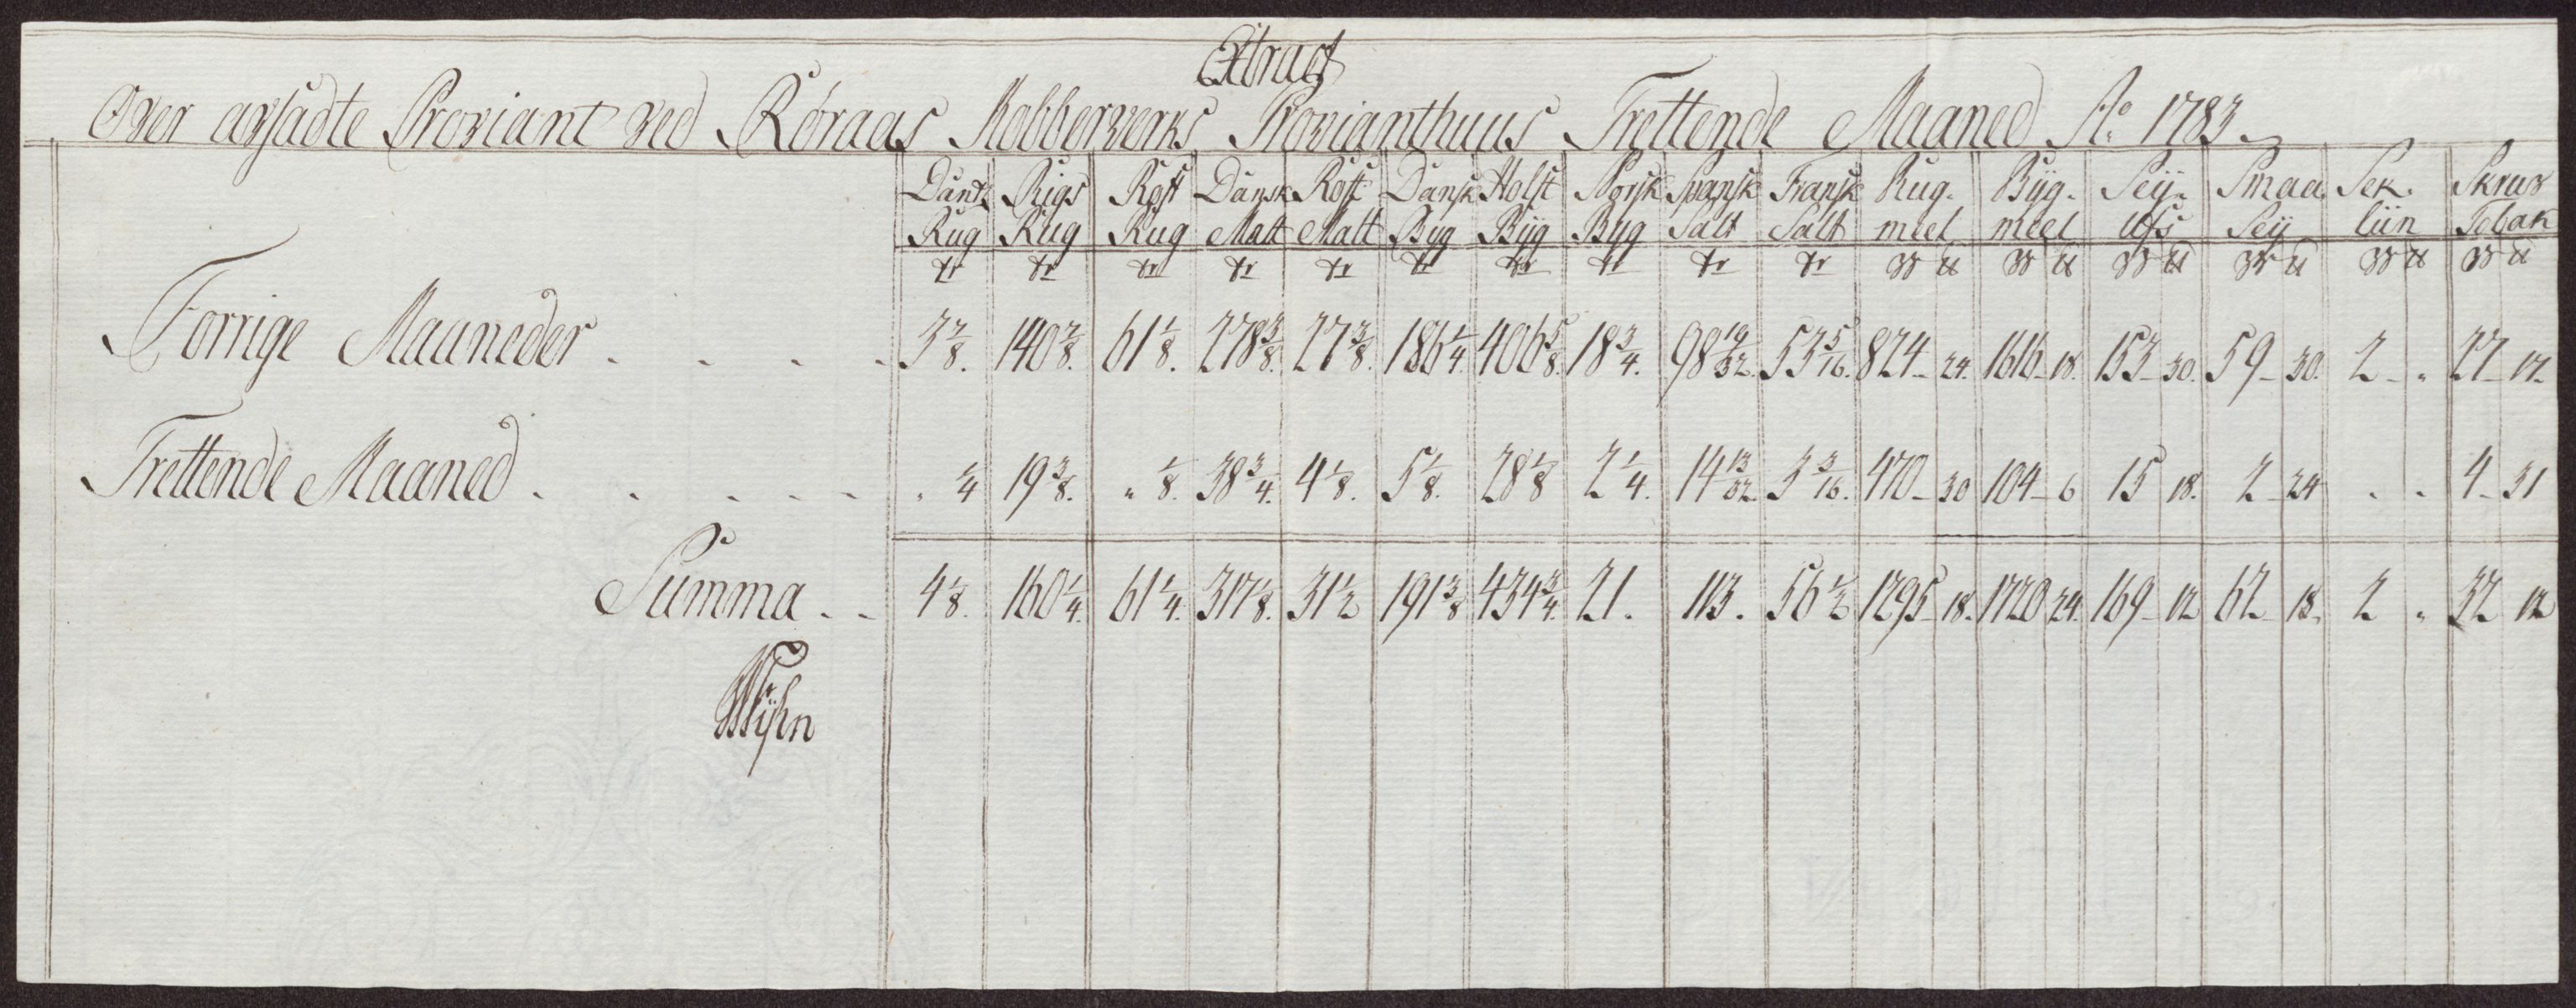 Extract
Over avsadte Proviant ved Røraas Kobberverks Provianthuus Trettende Maaned Ao 1783.
Dantz Rigs Røst Dansk Røst Dansk Holst Norsk Spansk Fransk Rug- Byg- Seÿ- Smaa Sek- Skrur
Rug Rug Rug Malt Malt Byg Byg Byg Salt Salt meel meel Ufs Seÿ liin Tobak
Tr Tr Tr Tr Tr Tr Tr Tr Tr Tr
Forrige Maaneder . . . . 3 7/8. 140 7/8. 61 1/8. 278 3/8. 27 3/8. 186 1/4 406 5/8. 18 3/4. 98 19/32. 53 5/16. 824 - 24. 1616 - 18. 153 - 30. 59 - 30. 2 - " 27 - 17.
Trettende Maaned . . . . . " 1/4 19 3/8. " 1/8. 38 3/4. 4 1/8. 5 1/8. 28 1/8 2 1/4. 14 13/32 3 3/16. 470 - 30 104 - 6 15 18. 2 - 24 " " 4 - 31
Summa . . 4 1/8. 160 1/4. 61 1/4. 317 1/8. 31 1/2 191 3/8 434 3/4. 21. 113. 56 1/2 1295 - 18. 1720 24. 169 - 12 62 18. 2 " 32 12